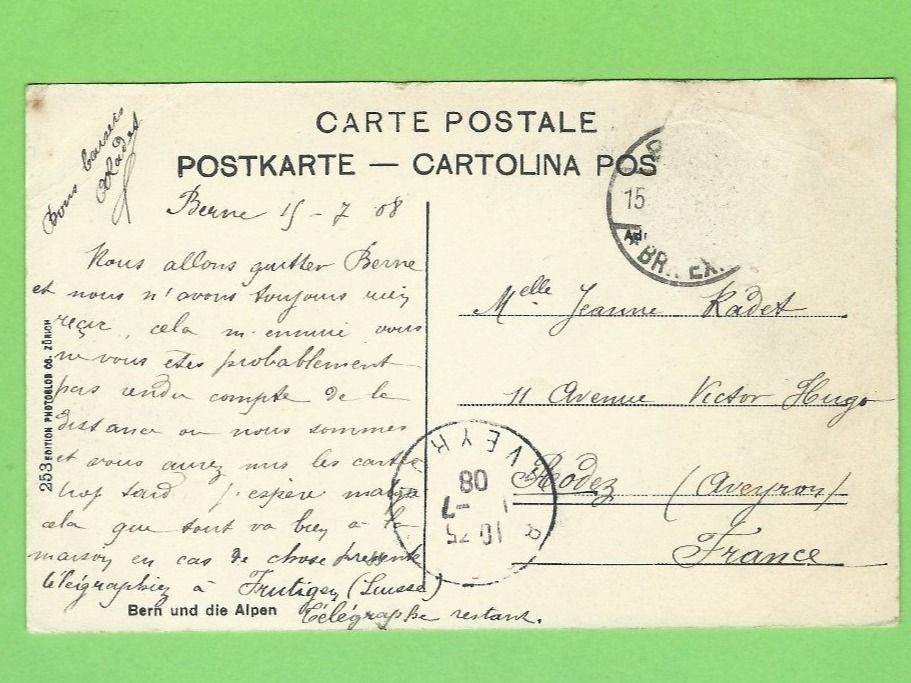 CARTE POSTALE
POSTKARTE — CARTOLINA POS
Bons baisers
Radet
Berne 15 - 7 08
Nous allons quitter Berne
et nous n'avons toujours rien
reçu, cela m'ennuie vous
ne vous êtes probablement
pas rendu compte de la
distance ou nous sommes
et vous aurez mis les cartes
trop tard j'espère malgré
cela que tout va bien à la
maison en cas de chose pressente
télégraphiez à Frutigen (Suisse)
Télégraphe restant.
15
Ad
BR. EX.
Melle Jeanne Radet
11 Avenue Victor Hugo
Rodez (Aveyron)
France
VEYR
08
-7
10 25
253 EDITION PHOTOGLOB CO. ZÜRICH
Bern und die Alpen